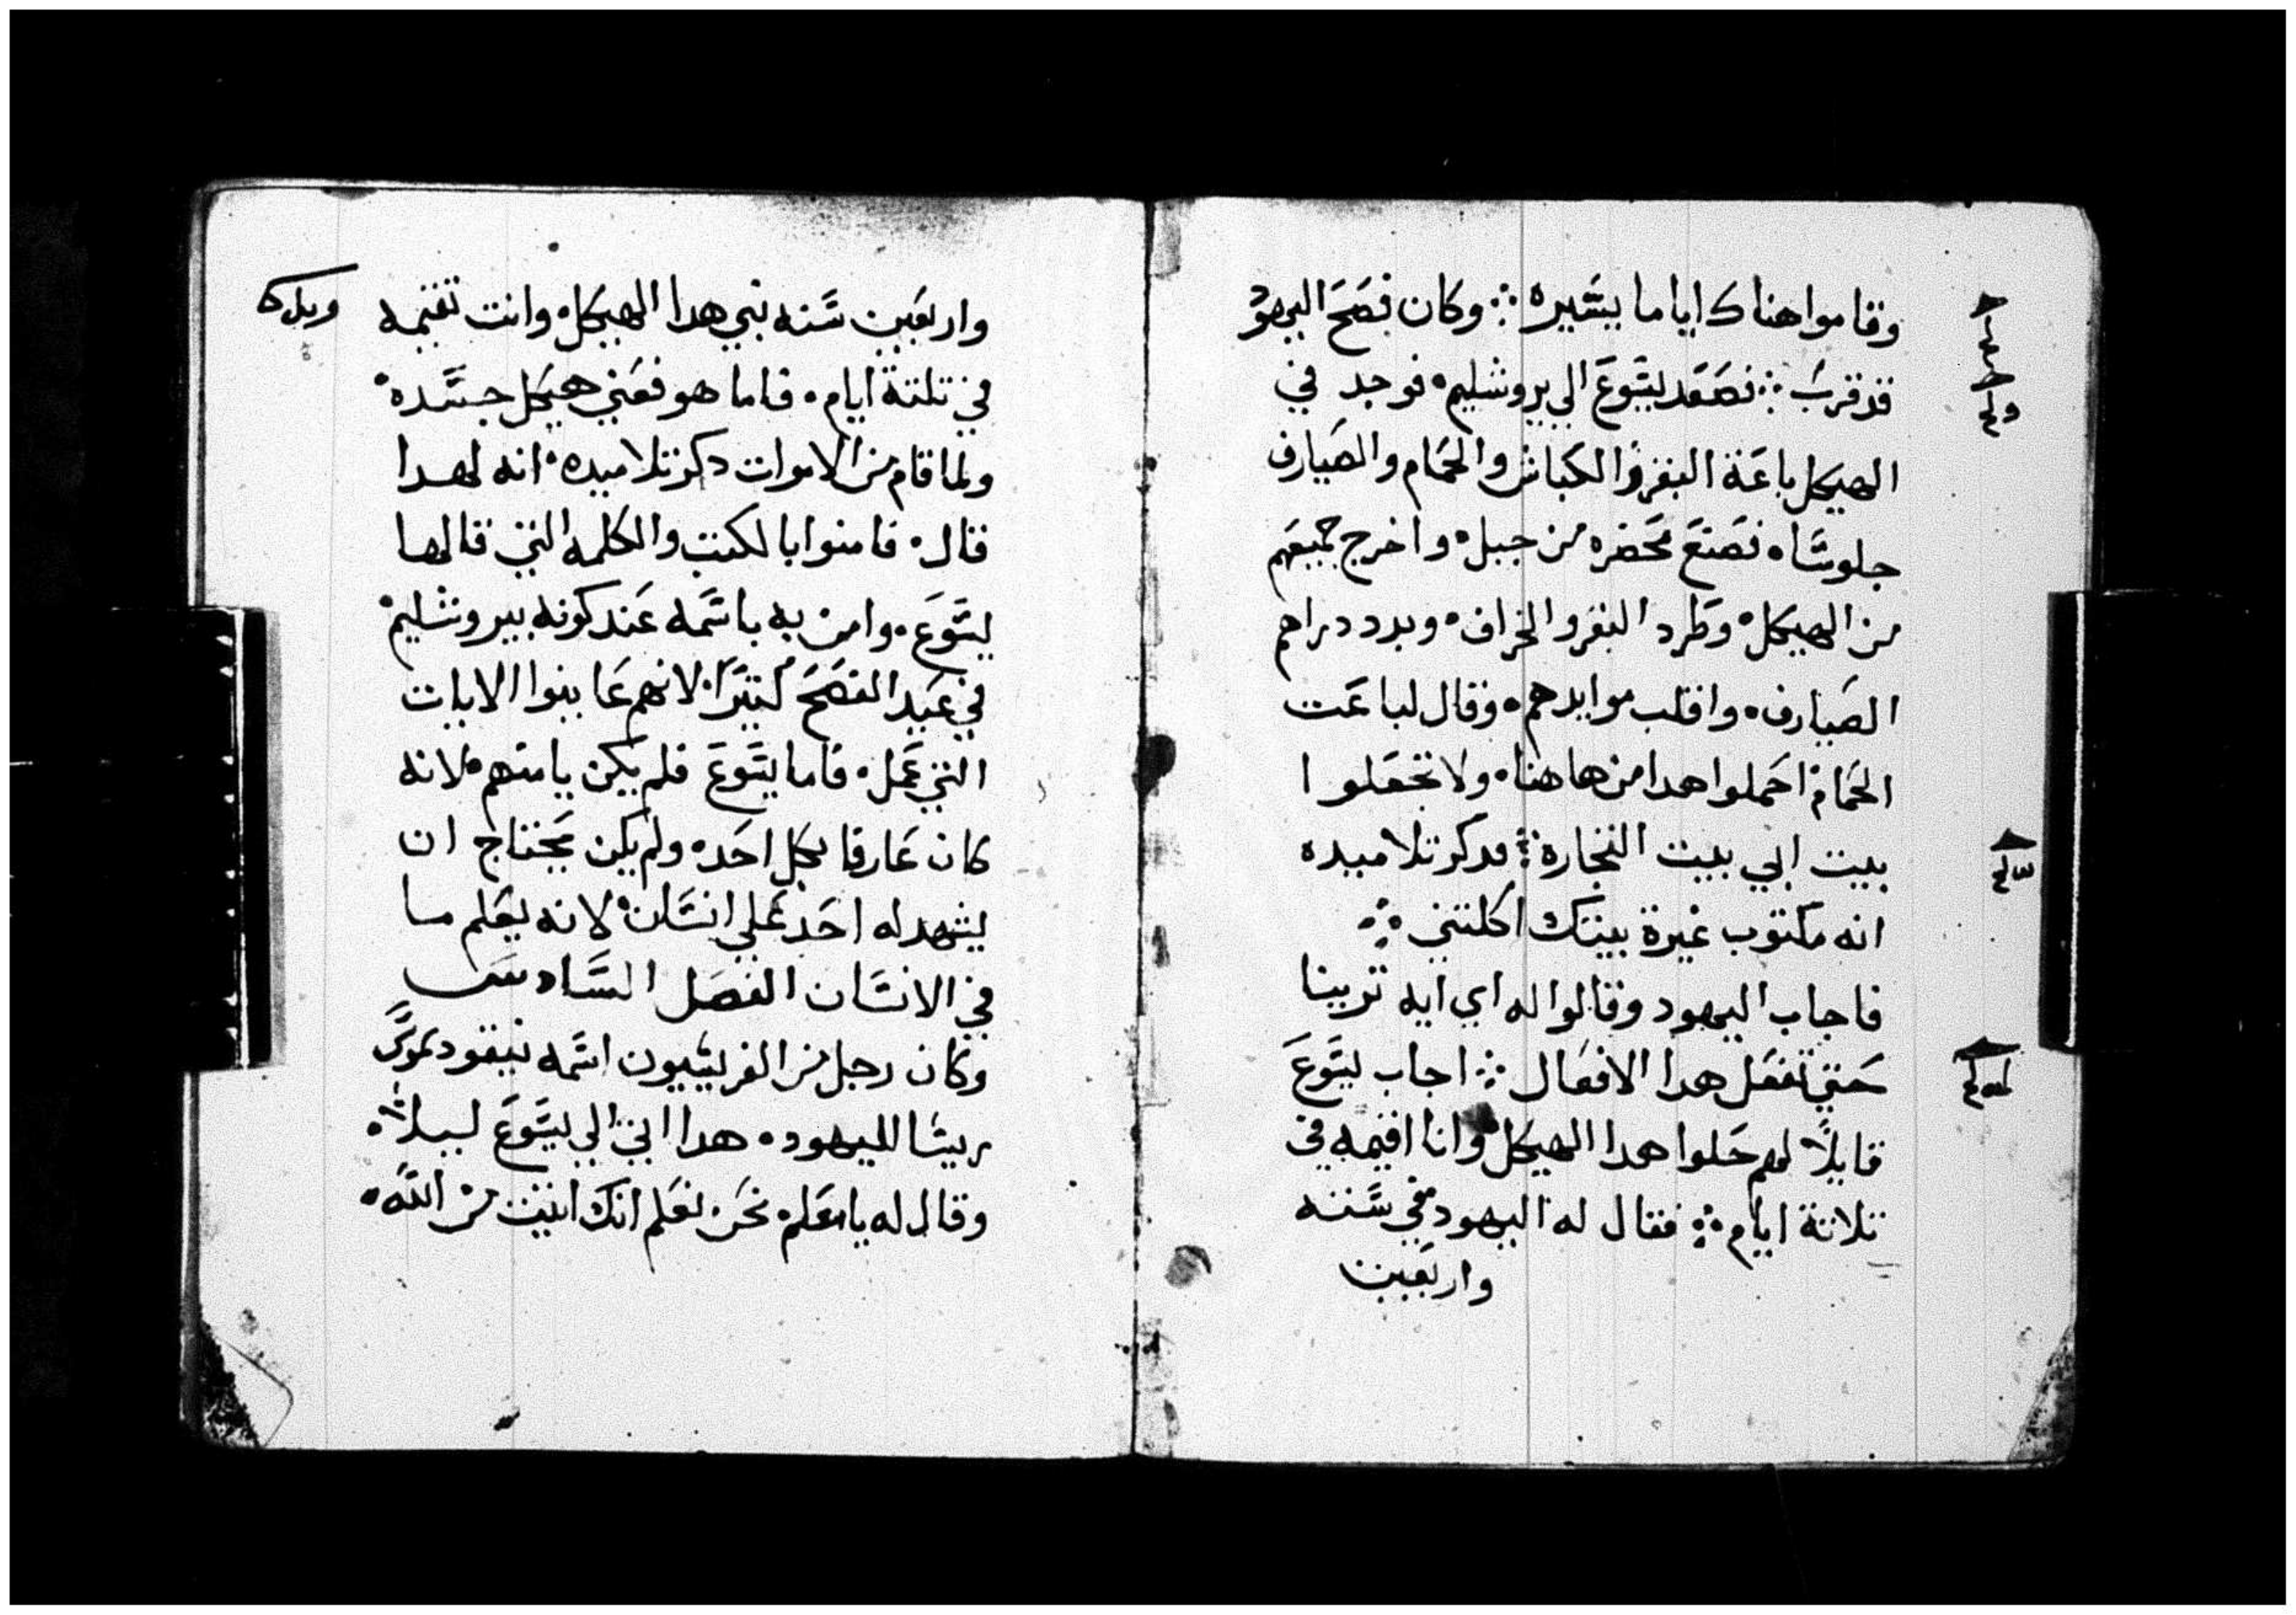 وقاموا هناك اياما يسيره ܀ وكان فصح اليهود
قد قرب ܀ فصعد يسوع الي يروشليم • فوجد في
الهيكل باعة البقر والكباش والحمام والصيارف
جلوسا • فصنع محضره من حبل • واخرج جميعهم
من الهيكل • وطرد البقر والخراف • وبدد دراهم
الصيارف • واقلب موايدهم • وقال لباعت
الحمام • احملوا هدا من هاهنا • ولا تجعلوا
بيت ابي بيت التجارة ܀ فدكر تلاميده
انه مكتوب غيرة بيتك اكلتني ܀
فاجاب اليهود وقالوا له اي ايه ترينا
حتي تفعل هدا الافعال ܀ اجاب يسوع
قايلاً لهم حلوا هدا الهيكل • وانا اقيمه في
تلاتة ايام ܀ فقال له اليهود في سته
واربعين
واربعين سنه بني هدا الهيكل • وانت تقيمه
في تلتة ايام • فاما هو فعني هيكل جسده •
ولما قام من الاموات دكر تلاميده • انه لهدا
قال • فامنوا بالكتب والكلمه التي قالها
يسوع • وامن به باسمه عند كونه بيروشليم •
في عيد الفصح كتيرًا • لانهم عاينوا الايات
التي عمل • فاما يسوع فلم يكن يامنهم • لانه
كان عارفا بكل احد • ولم يكن يحتاج ان
يشهد له احد علي انسان • لانه يعلم ما
في الانسان الفصل السادس
وكان رجل من الفريسيون اسمه نيقوديموس
ريسا لليهود • هدا اتي الي يسوع ليلاً •
وقال له يا معلم • نحن نعلم انك اتيت من الله •